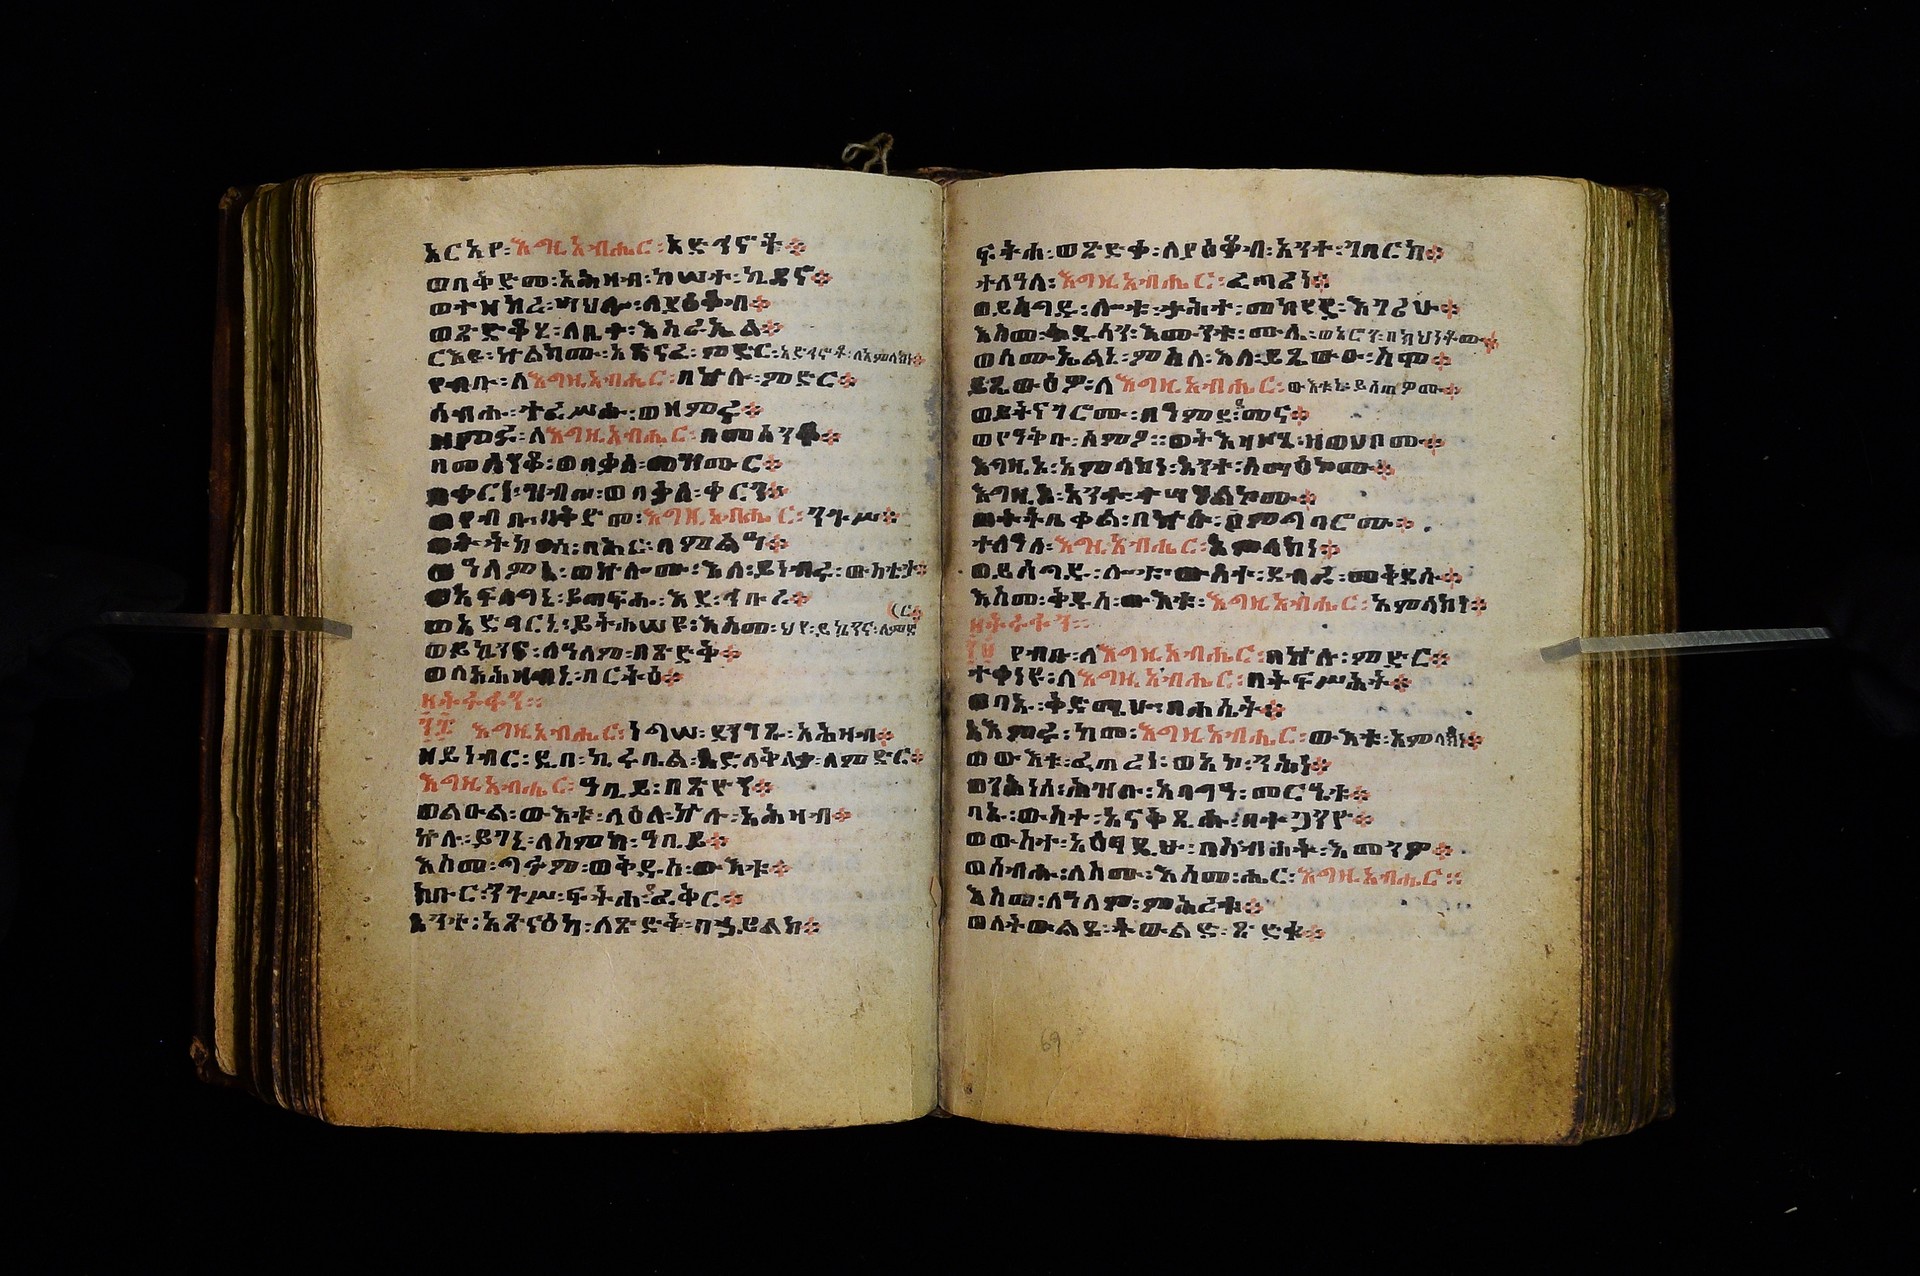 አርአየ፡እግዚአብሔር፡አድኅኖቶ፨
ወበቅድመ፡አሕዛብ፡ከሠተ፡ኪዳኖ፨
ወተዘከረ፡ሣህሎ፡ለያዕቆብ፨
ወጽድቆሂ፡ለቤተ፡እስራኤል፨
ርእዩ፡ኵልክሙ፡አጽናፈ፡ምድር፡አድኅኖቶ፡ለአምላክነ፨
የብቡ፡ለእግዚአብሔር፡በኵሉ፡ምድር፨
ሰብሑ፡ተፈሥሑ፡ወዘምሩ፨
ዘምሩ፡ለእግዚአብሔር፡በመሰንቆ፨
በመሰንቆ፡ወበቃለ፡መዝሙር፨
በቀርነ፡ዝብጦ፡ወበቃለ፡ቀርን፨
ወየብቡ፡በቅድመ፡እግዚአብሔር፡ንጉሥ፨
ወትትከወስ፡ባሕር፡በምልዓ፨
ወዓለምኒ፡ወኵሎሙ፡እለ፡ይነብሩ፡ውስቴታ፨
ወአፍላግኒ፡ይጠፍሑ፡እደ፡ኅቡረ፨
ወአድባርኒ፡ይትሐሠዩ፡እስመ፡ሀየ፡ይኴንና፡ለምድ
(ር፨
ወይኴንና፡ለዓለም፡በጽድቅ፨
ወለአሕዛብኒ፡በርትዕ፨
ዘትትቀኝ፡፡
፺፰ እግዚአብሔር፡ነግሠ፡ደንገፁ፡አሕዛብ፨
ዘይነብር፡ዲበ፡ኪሩቤል፡አድለቅለቃ፡ለምድር፨
እግዚአብሔር፡ዓቢይ፡በጽዮን፨
ወልዑል፡ውእቱ፡ላዕለ፡ኵሉ፡አሕዛብ፨
ኵሉ፡ይገኒ፡ለስምከ፡ዓቢይ፨
እስመ፡ግሩም፡ወቅዱስ፡ውእቱ፨
ክቡር፡ንጉሥ፡ፍትሐ፡ያፈቅር፨
አንተ፡አጽናዕካ፡ለጽድቅ፡በኃይልከ፨
ፍትሐ፡ወጽድቀ፡ለያዕቆብ፡አንተ፡ገበርከ፨
ተለዓለ፡እግዚአብሔር፡ፈጣሪነ፨
ወይሰግዱ፡ሎቱ፡ታሕተ፡መከየደ፡እገሪሁ፨
እስመ፡ቅዱሳን፡እሙንቱ፡ሙሴ፡ወአሮን፡በክህነቶሙ፨
ወሳሙኤልኒ፡ምስለ፡እለ፡ይጼውዑ፡ስሞ፨
ይጼውዕዎ፡ለእግዚአብሔር፡ውእቱኒ፡ይሰጠዎሙ፨
ወይትናገሮሙ፡በዓምደ፡ደመና፨
ወየዓቅቡ፡ስምዖ፡፡ወትእዛዛቲሁ፡ዘወሀቦሙ፨
እግዚኦ፡አምላክነ፡አንተ፡ሰማዕኮሙ፨
እግዚኦ፡አንተ፡ተሣሃልኮሙ፨
ወትትቤቀል፡በኵሉ፡ምግባሮሙ፨
ተለዓለ፡እግዚአብሔር፡አምላክነ፨
ወይሰግዱ፡ሎቱ፡ውስተ፡ደብረ፡መቅደሱ፨
እስመ፡ቅዱስ፡ውእቱ፡እግዚአብሔር፡አምላክነ፨
ዘትትቀኝ፡፡
፺፱ የብቡ፡ለእግዚአብሔር፡በኵሉ፡ምድር፨
ተቀነዩ፡ለእግዚአብሔር፡በትፍሥሕት፨
ወባኡ፡ቅድሜሁ፡በሐሤት፨
አእምሩ፡ከመ፡እግዚአብሔር፡ውእቱ፡አምላክነ፨
ወውእቱ፡ፈጠረነ፡ወአኮ፡ንሕነ፨
ወንሕነሰ፡ሕዝቡ፡አባግዓ፡መርዔቱ፨
ባኡ፡ውስተ፡አናቅጺሁ፡በተጋንዮ፨
ወውስተ፡አዕፃዲሁ፡በስብሐት፡እመንዎ፨
ወሰብሑ፡ለስሙ፡እስመ፡ሔር፡እግዚአብሔር፡፡
እስመ፡ለዓለም፡ምሕረቱ፨
ወለትውልደ፡ትውልድ፡ጽድቁ፨
69